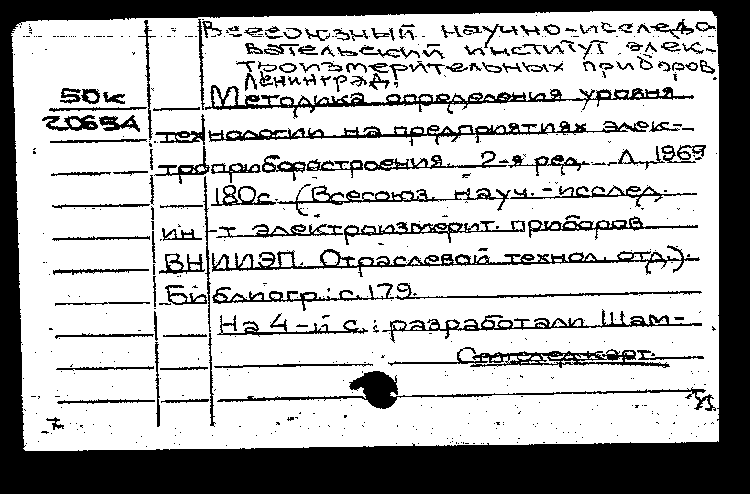 Всесоюзный научно-исследо
вательский институт элек-
троизмерительных приборов,
Ленинград.
50к
20654
Методика определения уровня
технологии на предприятиях элек-
троприборостроения. 2-я ред. Л., 1969
180с. (Всесоюз. науч.-исслед.
ин-т электроизмерит. приборов
ВНИИЭП. Отраслевой технол. отд.).
Библиогр.: с. 179.
На 4-й с.: разработали Шам-
См.след.карт.